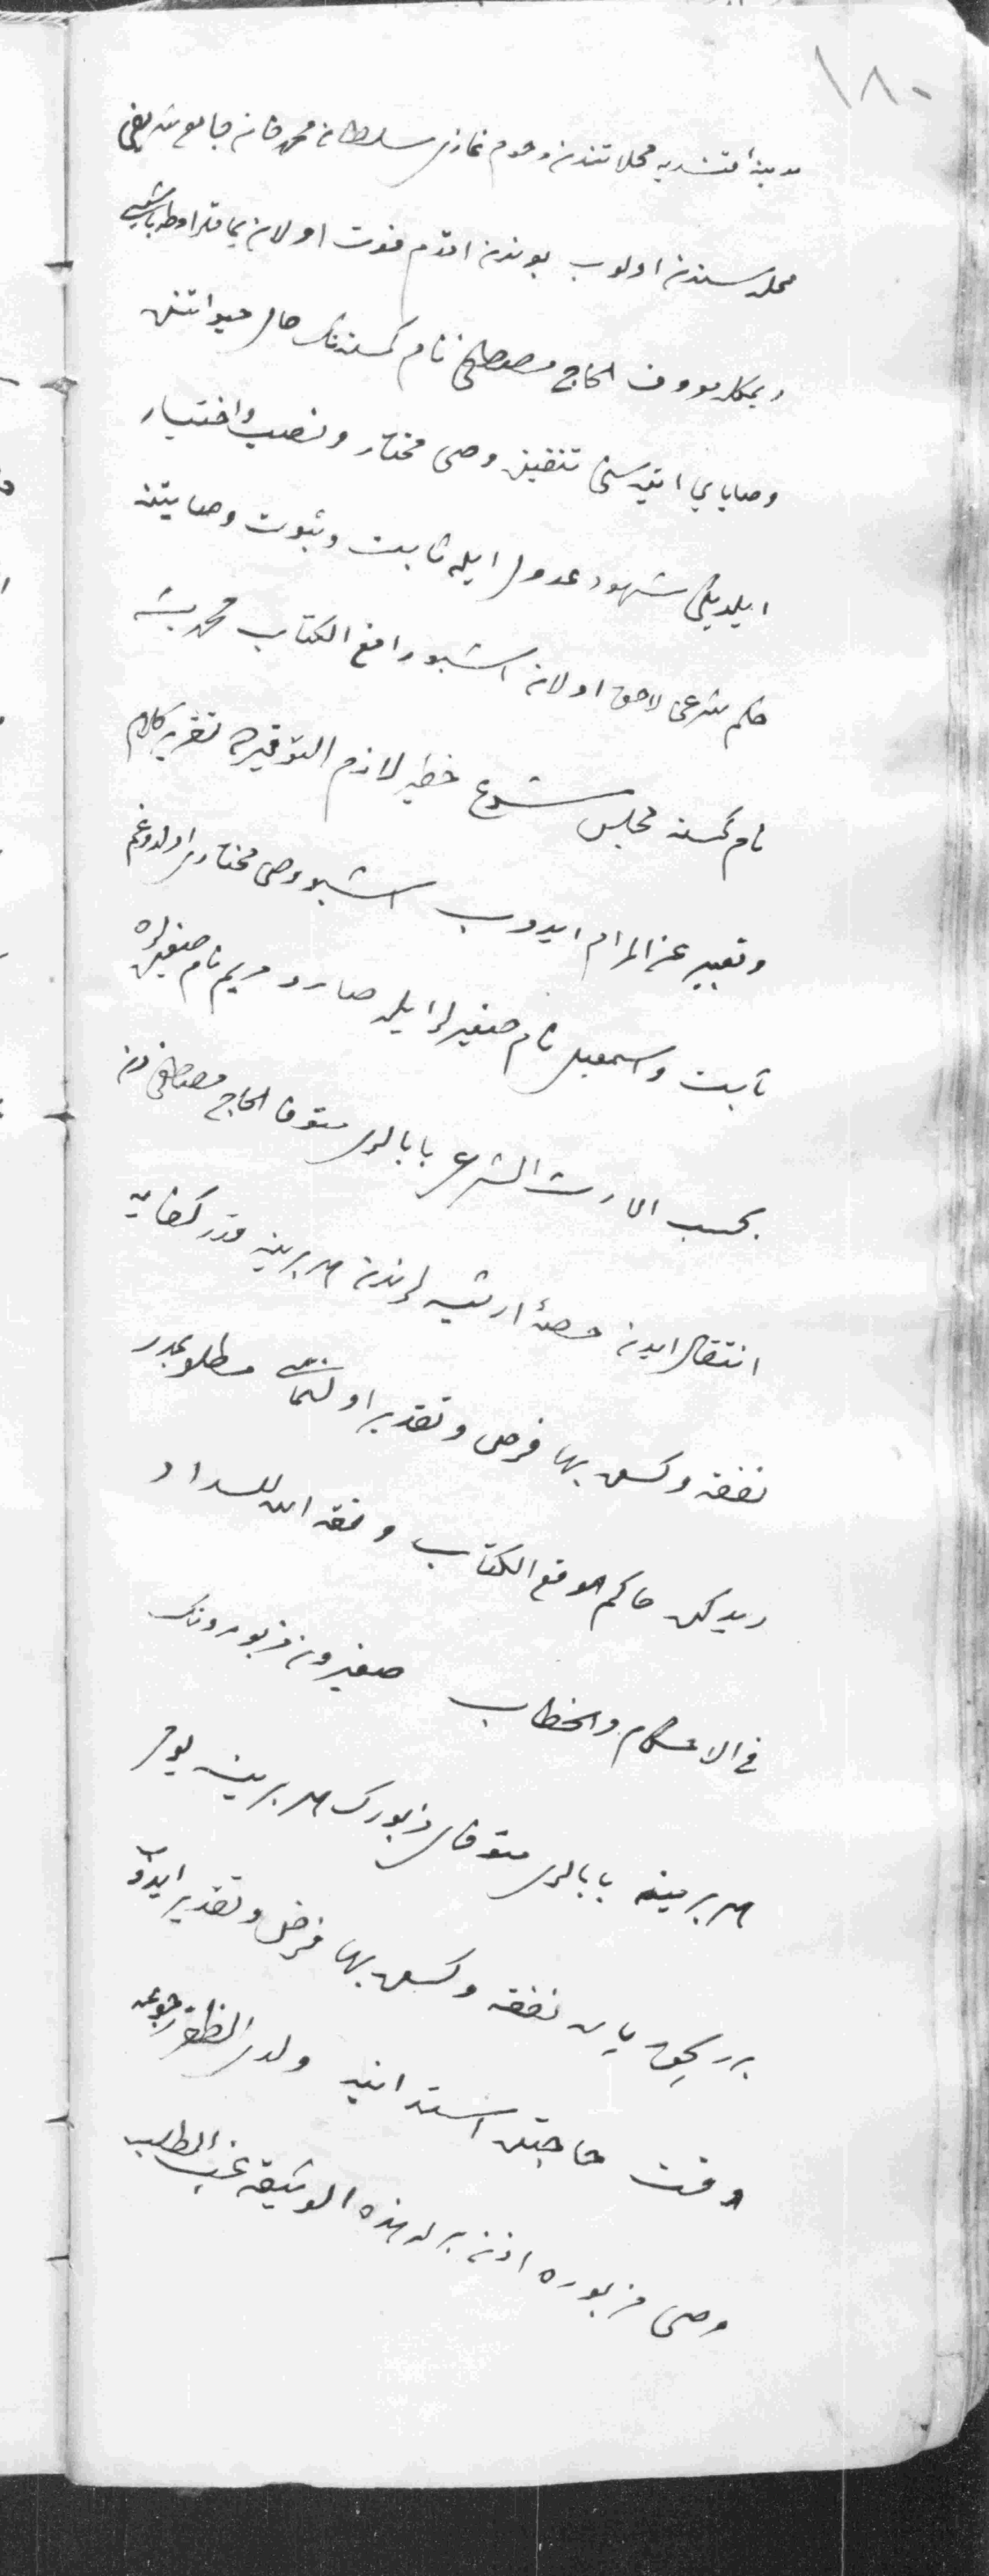 ١٨٠
مدينهٔ محلاتندن مرحوم غازى سلطان محمد خان جامع شريفى
محله سندن اولوب بوندن اقدم فوت اولان
ديمكله معروف الحاج مصطفى نام كمسنه نك حال حياتنده
وصاياى تنفيذه وصى مختار ونصب واختيار
ايلديكى شهود عدول ايله ثابت وثبوت وصايتنه
حكم شرعى لاحق اولان اشبو رافع الكتاب محمد بشه
نام كمسنه مجلس شرع خطير لازم التوقيرده تقرير كلام
وتعبير عن المرام ايدوب اشبو وصى مختارى اولدوغم
ثابت واسمعيل نام صغيرلر ايله ومريم نام صغيره لره
بحسب الارث الشرعى بابالرى متوفا الحاج مصطفى دن
انتقال ايدن حصهٔ ارثيه لرندن هر برينه قدر كفايه
نفقه وكسوه بها فرض وتقدير اولنمق مطلوبمدر
ديدكده حاكم موقع الكتاب وفقه الله للسداد
فى الاحكام والخطاب صغيرون مزبورونك
هر برينه بابالرى متوفاى مزبورك هر برينه يومى
نفقه وكسوه بها فرض وتقدير ايدوب
وقت حاجتده استدانه ولدى الظفر رجوعه
وصى مزبوره اذن هذه الوثيقه غب الطلب